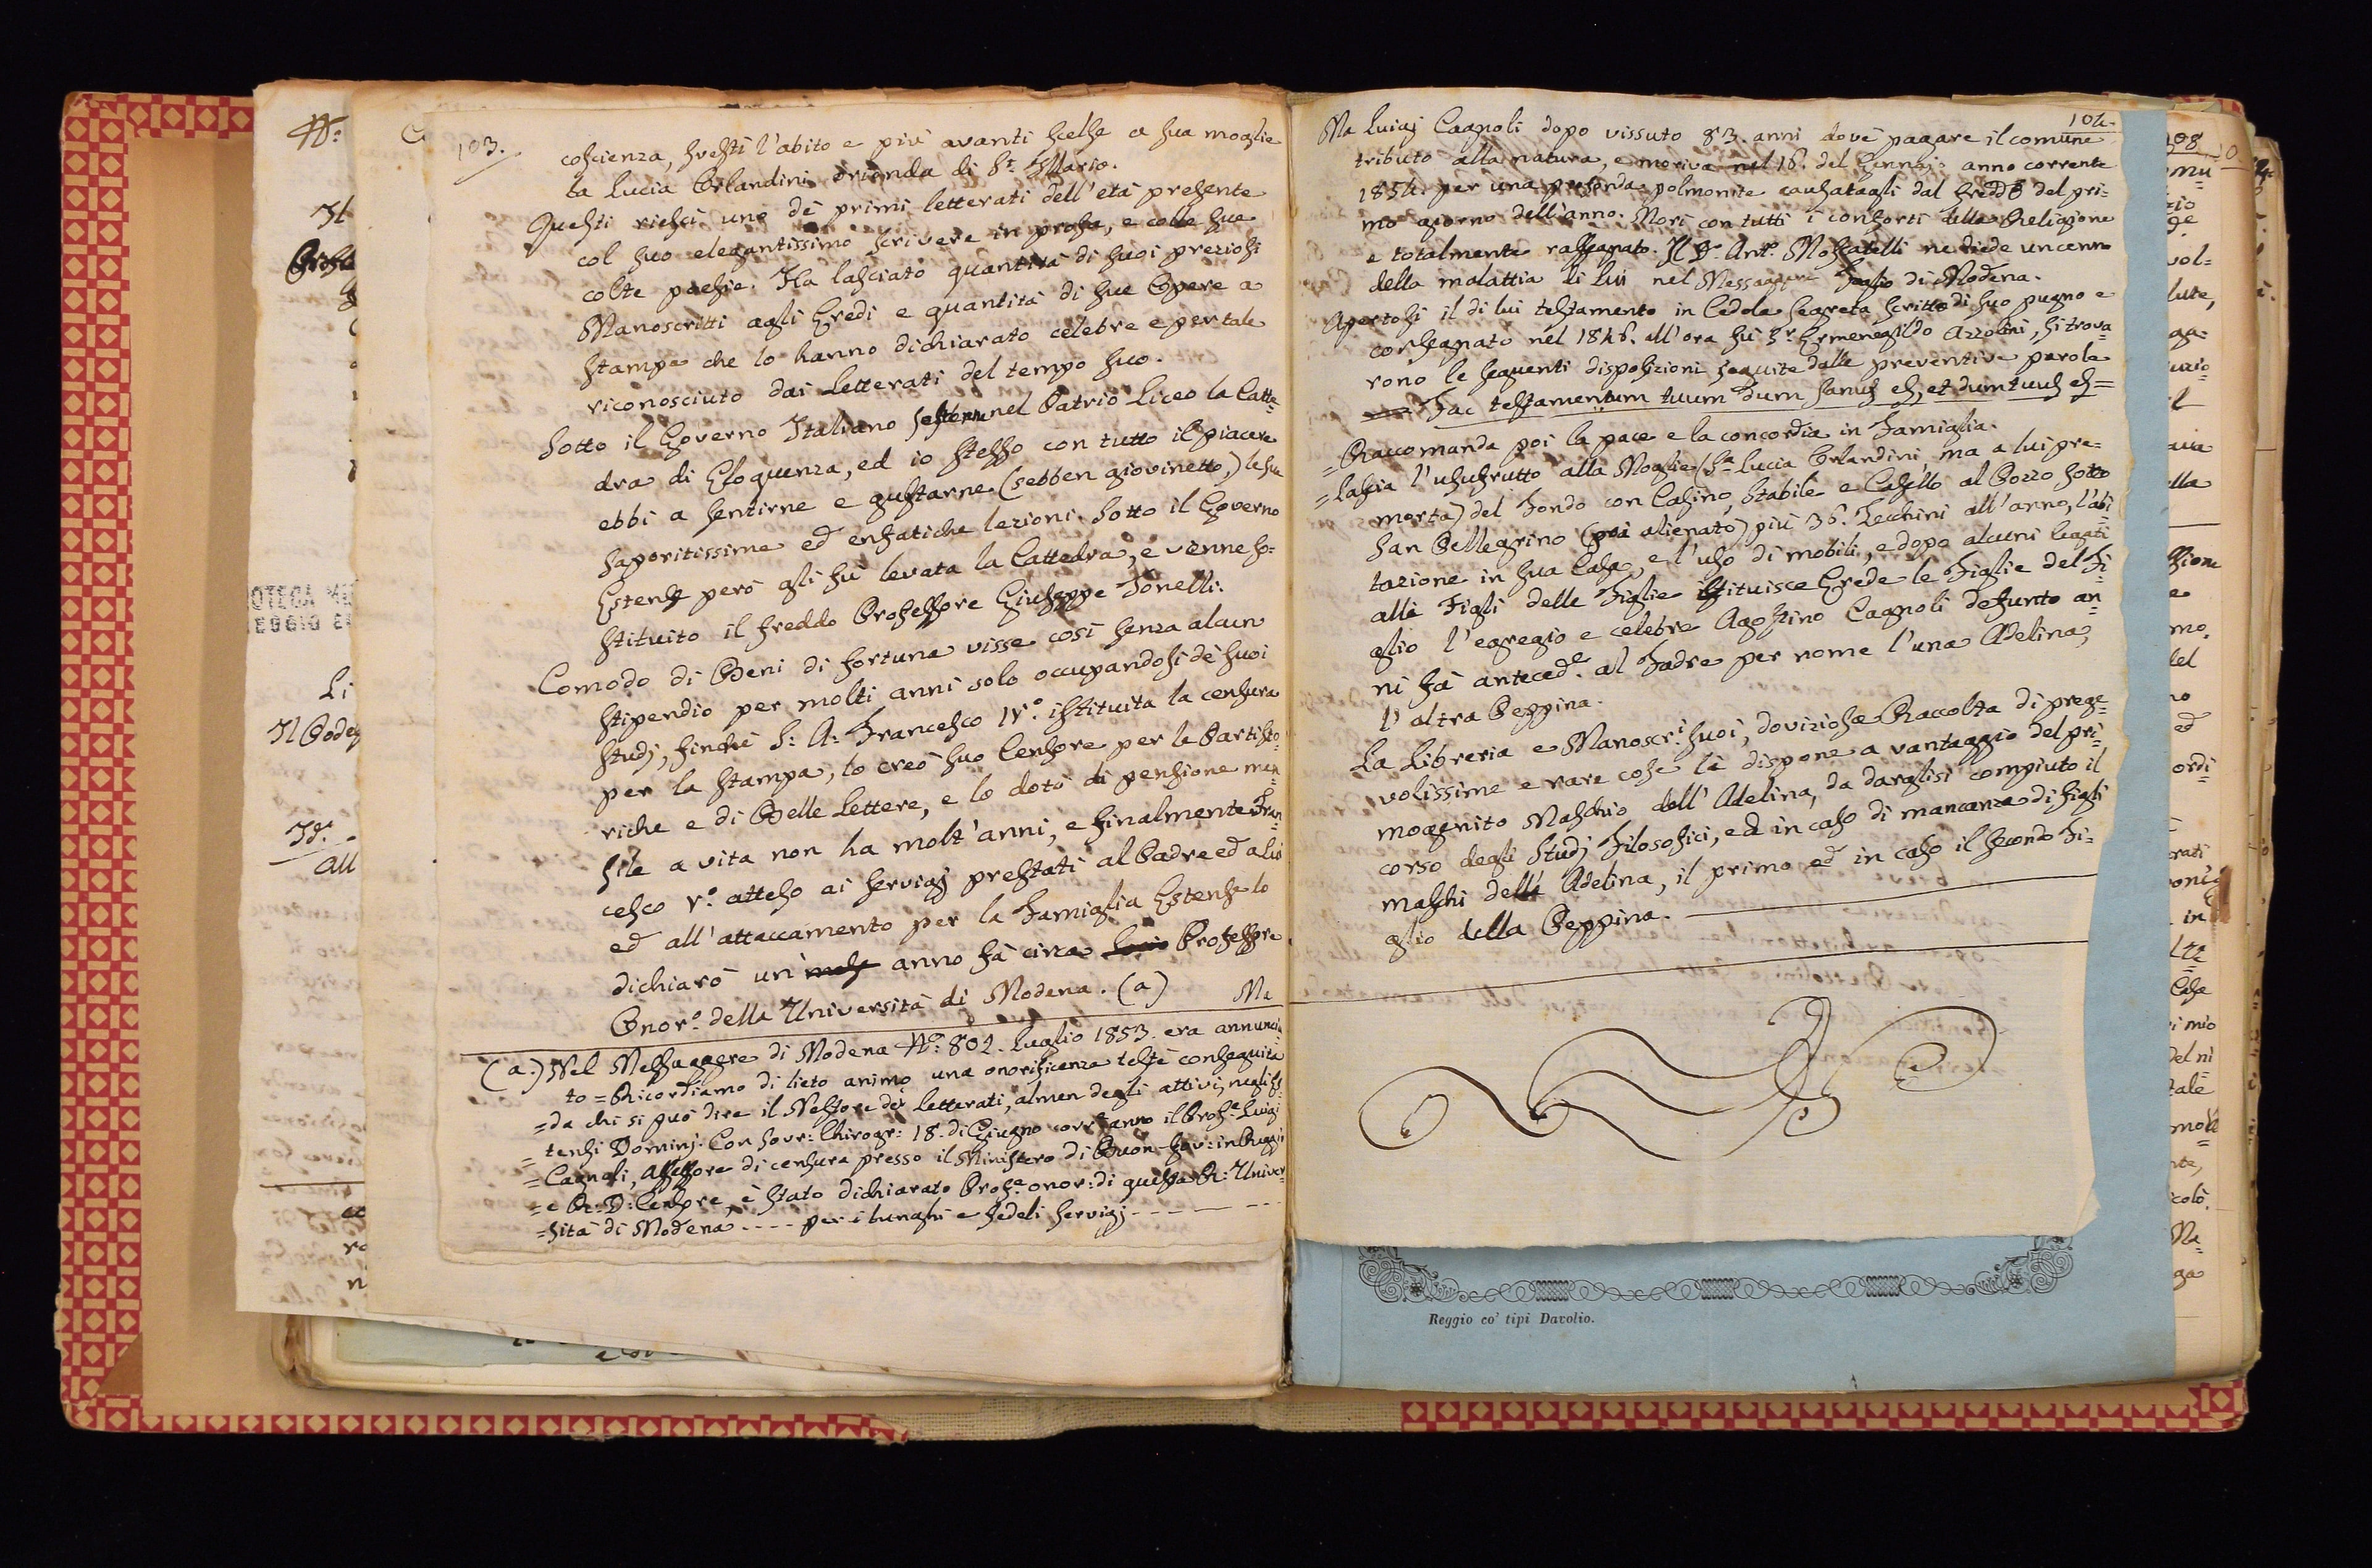 103.
coscienza, svestì l'abito e più avanti scelse a sua moglie
la Lucia Orlandini orionda di S.t Ilario.
Questi riescì uno de primi letterati dell'età presente
col suo elegantissimo scrivere in prosa, e colle sue
colte poesie. Ha lasciato quantità di suoi preziosi
Manoscritti agli Eredi e quantità di sue Opere a
stampa che lo hanno dichiarato celebre e per tale
riconosciuto dai Letterati del tempo suo.
Sotto il Governo Italiano sostenne nel Patrio Liceo la Catte=
dra di Eloquenza, ed io stesso con tutto il piacere
ebbi a sentirne e gustarne (sebben giovinetto,) le sue
saporitissime ed enfatiche lezioni. Sotto il Governo
Estense però gli fù levata la Cattedra, e venne so=
stituito il freddo Professore Giuseppe Tonelli.
Comodo di Beni di fortuna visse così senza alcun
stipendio per molti anni solo occupandosi de' suoi
studj, finchè S: A: Francesco IV.o istituita la censura
per la stampa, lo creò suo Censore per le Parti sto=
riche e di Belle Lettere, e lo dotò di pensione men
sile a vita non ha molt'anni, e finalmente Fran=
cesco V.o atteso ai servigj prestati al Padre ed a lui
ed all'attaccamento per la Famiglia Estense lo
dichiarò un' mese anno fà circa Professore
Onor.o della Università di Modena. (a)
Ma
(a.) Nel Messaggere di Modena N.o 802. Luglio 1853. era annuncia
to = Ricordiamo di lieto animo una onorificenza testè conseguita
= da chi si può dire il Nestore dei letterati, almen degli attivi, negli Es=
= tensi Dominj. Con Sovr: Chirogr: 18. di Giugno corr: anno il Prof.e Luigi
= Cagnoli, Assessore di censura presso il Ministero di Buon-Gov: in Reggio
= e R: D: Censore, è stato dichiarato Prof.e onor: di questa R: Univer
= sità di Modena ---- per i lunghi e fedeli servigj ----
104.
Ma Luigj Cagnoli dopo vissuto 83. anni dovè pagare il comune
tributo alla natura, e moriva nel 16. del Gennajo anno corrente
1854. per una profonda polmonite causatagli dal freddo del pri=
mo giorno dell'anno. Morì con tutti i conforti della Religione
e totalmente rassegnato. Il D.r Ant.o Moscatelli ne diede un cenno
della malattia di lui nel Messaggere Foglio di Modena.
Apertosi il di lui testamento in Cedola segreta scritta di suo pugno e
consegnato nel 1846. all'ora fù S.r Ermenegildo Azzolini, si trova=
rono le seguenti disposizioni seguite dalle preventive parole
Fac testamentum tuum dum sanus es, et dum tuus es =
= Raccomanda poi la pace e la concordia in Famiglia.
= Lascia l'usufrutto alla Moglie (S.a Lucia Orlandini ma a lui pre=
morta) del Fondo con Casino, stabile e Casello al Pozzo sotto
San Pellegrino (poi alienato) più 36. Zecchini all'anno, l'abi=
tazione in sua Casa, e l'uso di mobili, e dopo alcuni legati
alli Figli delle Figlie istituisce Erede le Figlie del Fi=
glio l'egregio e celebre Agostino Cagnoli defunto an
ni fà anteced.e al Padre per nome l'una Adelina,
l'altra Peppina.
La Libreria e Manoscr.i suoi, doviziosa Raccolta di prege=
volissime e rare cose le dispone a vantaggio del pri=
mogenito Maschio dell'Adelina, da darglisi compiuto il
corso degli Studj Filosofici, ed in caso di mancanza di figli
maschi dell'Adelina, il primo ed in caso il secondo Fi=
glio della Peppina.
Reggio co' tipi Davolio.